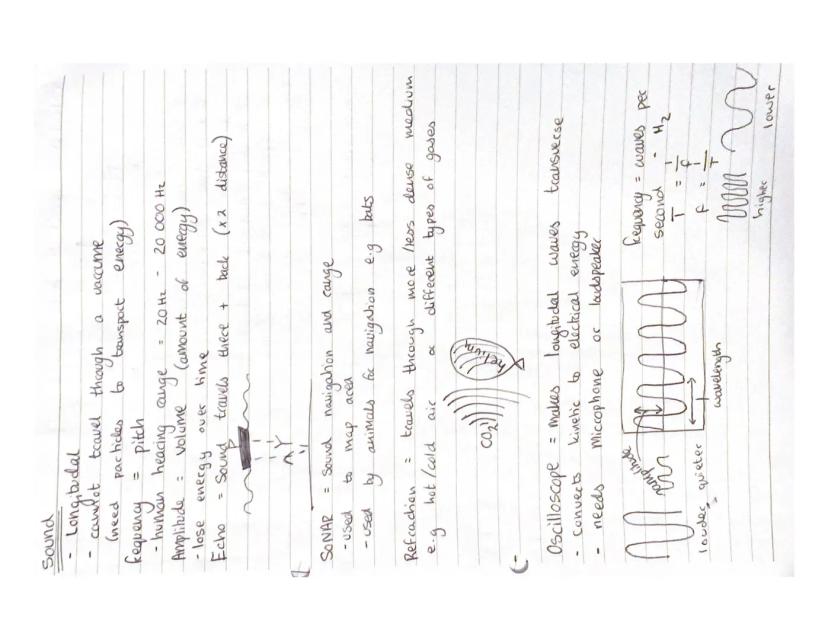 Sound
- Longitudal
- cannot travel through a vaccume
(need particles to transport energy)
frequency = pitch
- human hearing range = 20Hz - 20 000 Hz
Amplitude = volume (amount of energy)
- lose energy over time
Echo = Sound travels there + back (x2 distance)
SONAR = Sound navigation and range
- used to map area
- used by animals for navigation e.g bats
Refraction = travels through more/less dense medium
e.g hot/cold air or different types of gases
CO2
helium
Oscilloscope = makes longitudal waves transverse
- converts kinetic to electrical energy
- needs Microphone or loudspeaker
amplitude
louder, quieter
wavelength
frequency = waves per
second - Hz
T = 1/f
f = 1/T
higher
lower